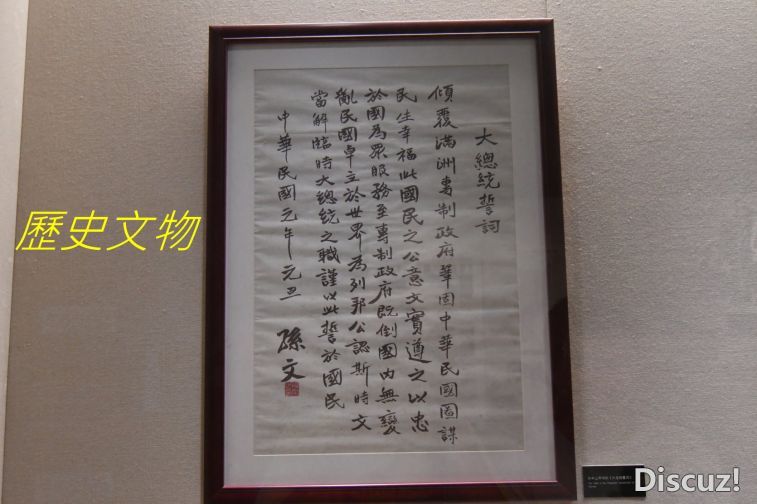 大總統誓詞
傾覆滿洲專制政府鞏固中華民國圖謀
民生幸福此國民之公意文實遵之以忠
於國為眾服務至專制政府既倒國內無變
亂民國卓立於世界為列邦公認斯時文
當解臨時大總統之職謹以此誓於國民
中華民國元年元旦 孫文
歷史文物
Discuz!